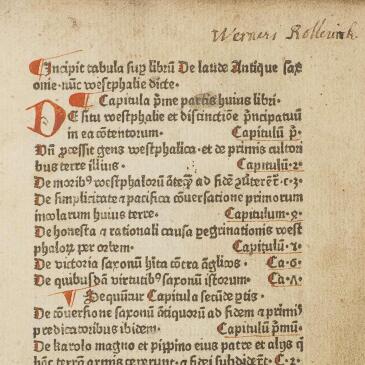 Werners Rollewink
¶Incipit tabula sup̱ librū De laude Antique sax
onie·nūc westphalie dicte·
¶ Capitula p̄me partis huius libri·
DE situ westphalie et distinctiōe p̄ncipatuū
in ea cōtentorum· Capitulū p̄·
Vn̄ p̄cessit gens westphalica·et de primis cultori
bus terre illius· Capitulū·2·
De morib⁹ westphaloꝝ ad fidē c·3·
De simplicitate ⁊ pacifica cōuersatione primorum
incolarum huius terre· Capitulum·ꝝ·
De honesta ⁊ rationali causa pegrinationis west
phaloꝝ per orbem· Capitulū·
De victoria saxonū hita cōtra āglicos· Ca·6·
De quibusdā virtutib⁹ saxonū istorum· Ca·ʌ·
¶Sequūtur Capitula secūde p̱tis·
De cōuersione saxonū antiquoꝝ ad fidem ⁊ primis
predicatoribus ibidem· Capitulū p̄mū·
De karolo magno et pippino eius patre et alijs q̄
hāc terrā armis ⁊ fidei subdiderūt· C·2·